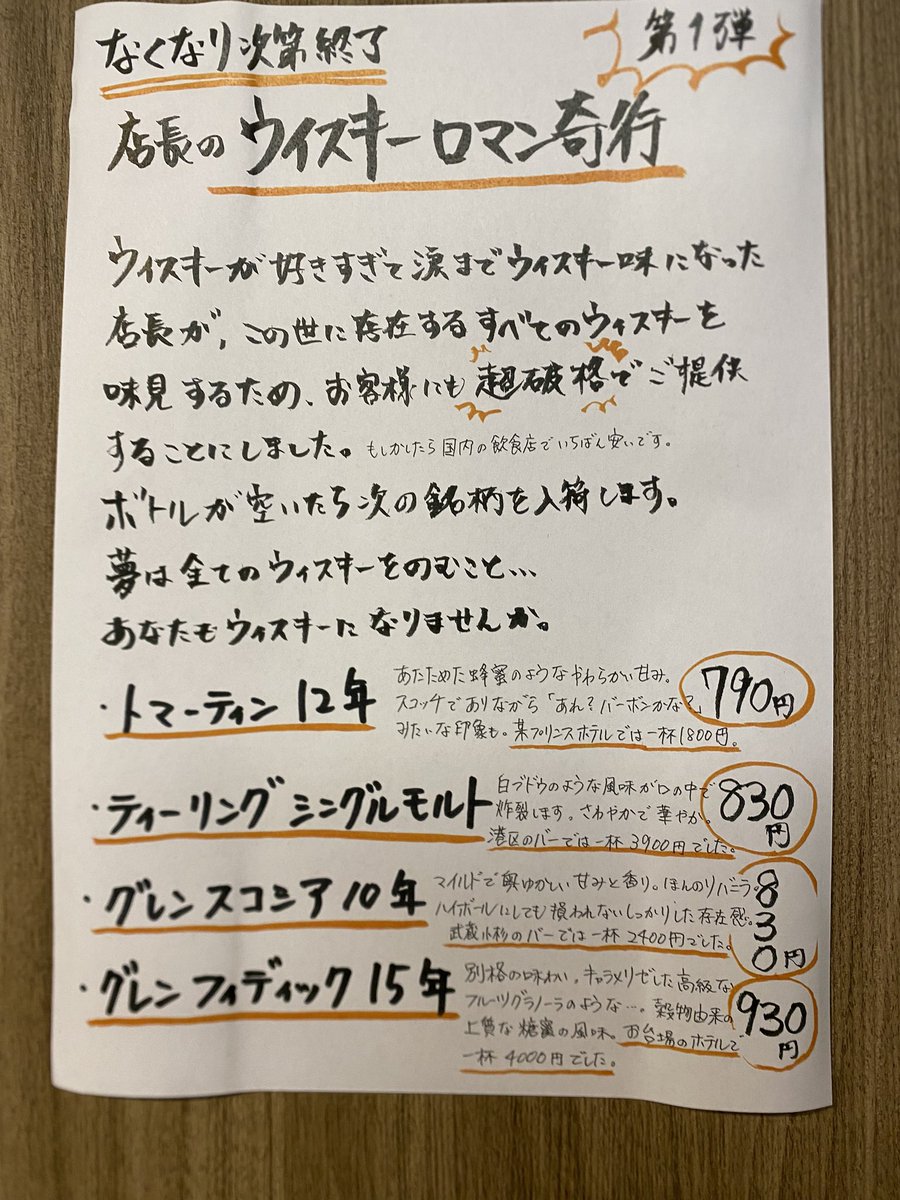 なくなり次第終了
第1弾
店長の ウイスキーロマン奇行
ウィスキーが好きすぎて涙までウィスキー味になった
店長が、この世に存在するすべてのウィスキーを
味見するため、お客様にも超破格でご提供
することにしました。もしかしたら国内の飲食店でいちばん安いです。
ボトルが空いたら次の銘柄を入荷します。
夢は全てのウィスキーをのむこと…
あなたもウィスキーになりませんか。
・トマーティン12年
あたためた蜂蜜のようなやわらかい甘み。
スコッチでありながら「あれ?バーボンかな?」
みたいな印象も。某プリンスホテルでは一杯1800円。
790円
・ティーリング シングルモルト
白ブドウのような風味が口の中で
炸裂します。さわやかで華やか。
港区のバーでは一杯3900円でした。
830円
・グレンスコシア10年
マイルドで奥ゆかしい甘みと香り。ほんのりバニラ。
ハイボールにしても損われないしっかりした存在感。
武蔵小杉のバーでは一杯2400円でした。
830円
・グレンフィディック15年
別格の味わい。キャラメリゼした高級な
フルーツグラノーラのような…。穀物由来の
上質な糖蜜の風味。お台場のホテルで
一杯4000円でした。
930円